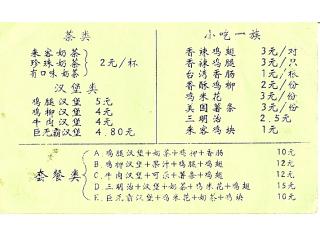 茶类
来客奶茶
珍珠奶茶 2元/杯
有口味奶茶
汉堡类
鸡腿汉堡 5元
鸡柳汉堡 4元
牛肉汉堡 4元
巨无霸汉堡 4.80元
小吃一族
香辣鸡翅 3元/对
香辣鸡腿 3元/个
台湾香肠 1元/根
香酥鸡柳 2元/份
鸡米花 3元/份
美国薯条 3元/份
三明治 2.5元
来客鸡块 1元
套餐类
A.鸡腿汉堡+奶茶+鸡柳+香肠 10元
B.鸡柳汉堡+果汁+鸡柳+鸡翅 12元
C.牛肉汉堡+可乐+薯条+鸡翅 12元
D.三明治+汉堡+奶茶+鸡米花+鸡翅 15元
E.巨无霸汉堡+奶茶+鸡米花+鸡块 10元